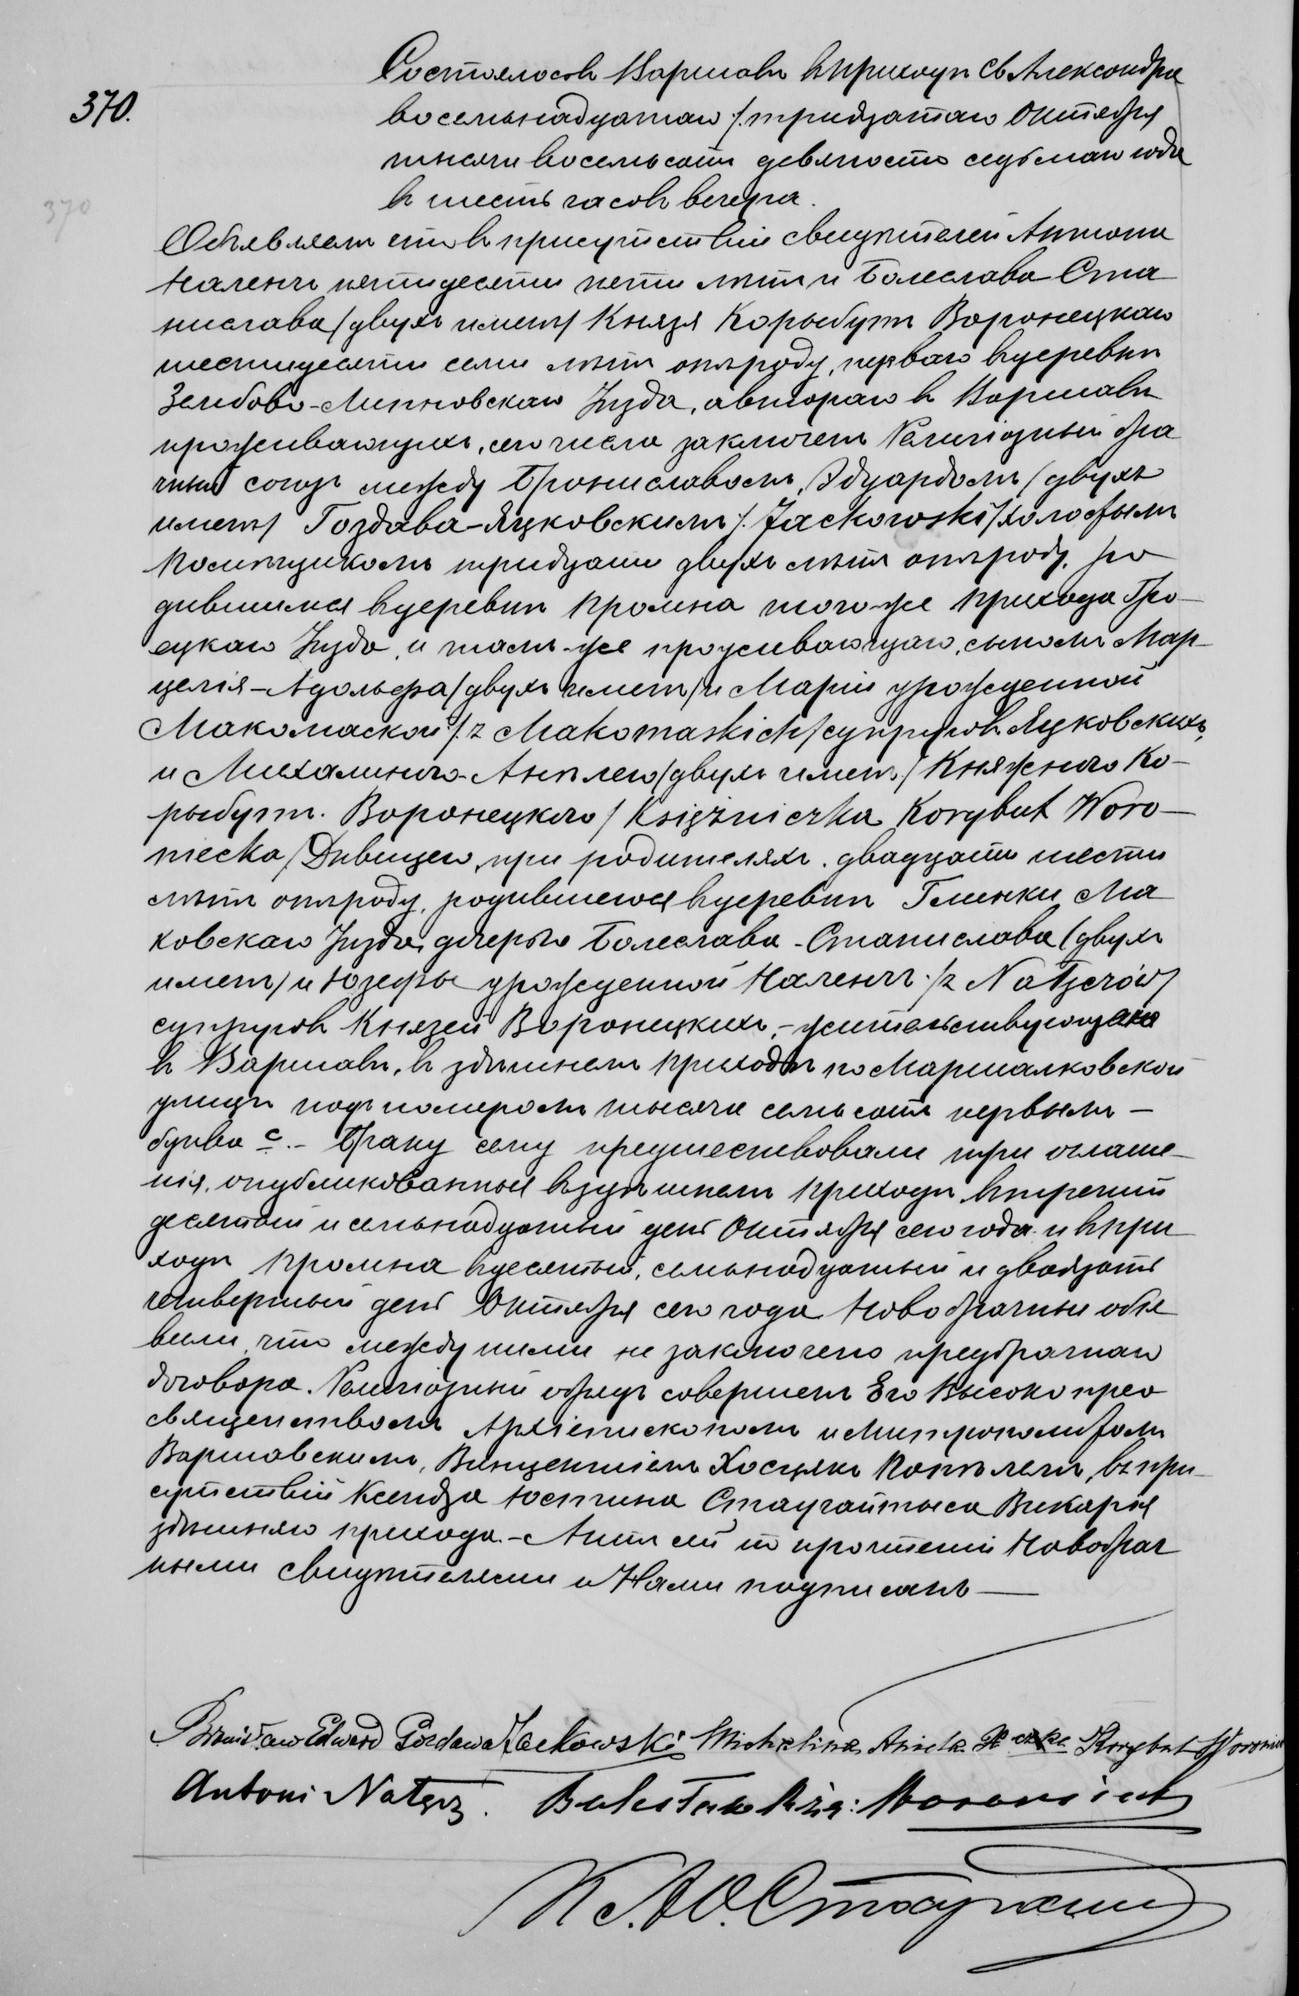 370.
370
Состоялось Варшавѣ въ приходѣ Св Александра
восемьнадцатаго /тридцатаго Октября
тысяча восемьсотъ девяносто седьмаго года
в шесть часовъ вечера.
Объявляемъ что в присутствіи свидѣтелей Антонія
Наленчъ пятидесяти пяти лѣтъ и Болеслава Ста
нислава /двухъ именъ/ Князя Корыбутъ Воронецкаго
шестидесяти семи лѣтъ отъ роду, перваго въ деревнѣ
Зембово-Липновскаго Уѣзда, автораго в Варшавѣ
проживающихъ, сего числа заключенъ Религіозный бра
чный союзъ между Брониславомъ, Эдуардомъ /двухъ
именъ/ Гоздава-Яцковскимъ /Jackowski/ холостымъ
помѣщикомъ тридцати двухъ лѣтъ отъ роду, ро
дившимся въ деревнѣ Промна того-же прихода Гро-
ецкаго Уѣзда, и тамъ-же проживающаго, сыномъ Мар-
целія-Адольфа /двухъ именъ/ и Маріи урожденной
Макомаской /z Makomaskich/ супруговъ Яцковскихъ,
и Михалиною-Анѣлею /двухъ именъ/ Княжною Ко-
рыбутъ. Воронецкою / Księżniczka Korybut Woro-
niecka / Дѣвицею, при родителяхъ. двадцати шести
лѣтъ отъ роду, родившеюся въ деревнѣ Глинки Ма
ковскаго Уѣзда, дочерью Болеслава-Станислава (двухъ
именъ/ и Юзефы урожденной Наленчъ /z Nałęczów/
супруговъ Князей Воронецкихъ,- жительствующею
в Варшавѣ, в здѣшнемъ приходѣ по Маршалковской
улицѣ подъ номеромъ тысяча семьсотъ первымъ -
буква с.- Браку сему предшествовали три оглаше-
нія, опубликованныя въ здѣшнемъ приходѣ в третій
десятый и семьнадцатый день Октября сего года и в при
ходѣ Промна въ десятый, семьнадцатый и двадцать
четвертый день Октября сего года Новобрачные объя
вили, что между ними не заключено предбрачнаго
договора. Религіозный обрядъ совершенъ Его Высокопрео
священствомъ Архіепископомъ и Митрополитомъ
Варшавскимъ, Винцентіемъ Хосцякъ Попѣлемъ, въ при-
сутствіи Ксендза Юстина Стаугайтыса Викарія
здѣшняго прихода.- Актъ сей по прочтеніи Новобрач
ными свидѣтелями и Нами подписанъ —
Bronisław Edward Gozdawa Jackowski Michalina Aniela Korybut Woroniec
Antoni Nałęcz. Bolesław Xże: Woroniecki